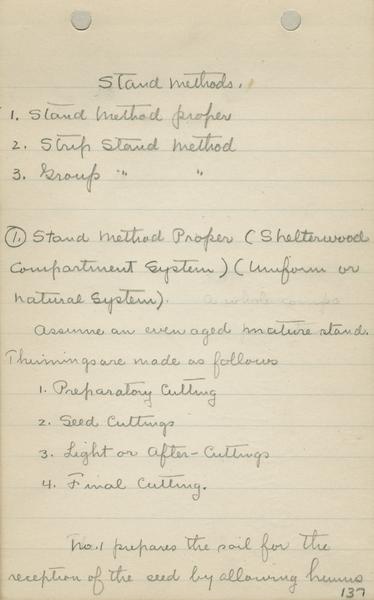 Stand Methods.
1. Stand Method proper
2. Strip Stand Method
3. Group " "
1. Stand Method Proper (Shelterwood
Compartment System) (Uniform or
Natural System).
Assume an even aged mature stand.
Thinnings are made as follows
1. Preparatory Cutting
2. Seed Cuttings
3. Light or After-Cuttings
4. Final Cutting.
No. 1 prepares the soil for the
reception of the seed by allowing humus
137